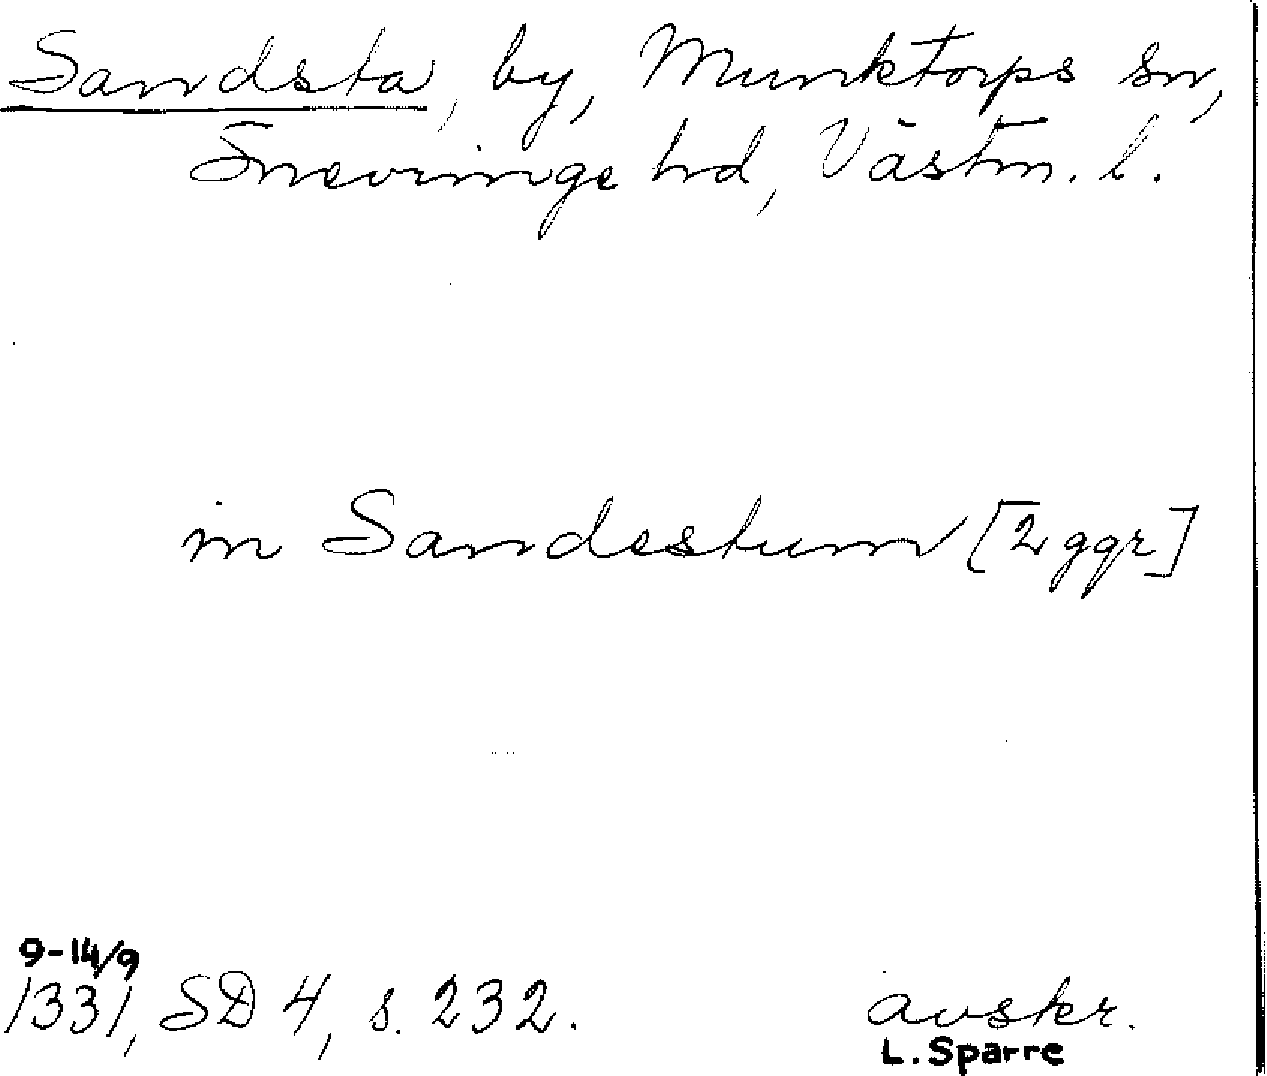 Sandsta, by, Munktorps sn,
Snevringe hd, Västm. l.
in Sandestum [2 ggr]
9-14/9
1331, SD 4, s. 232.
avskr.
L. Sparre